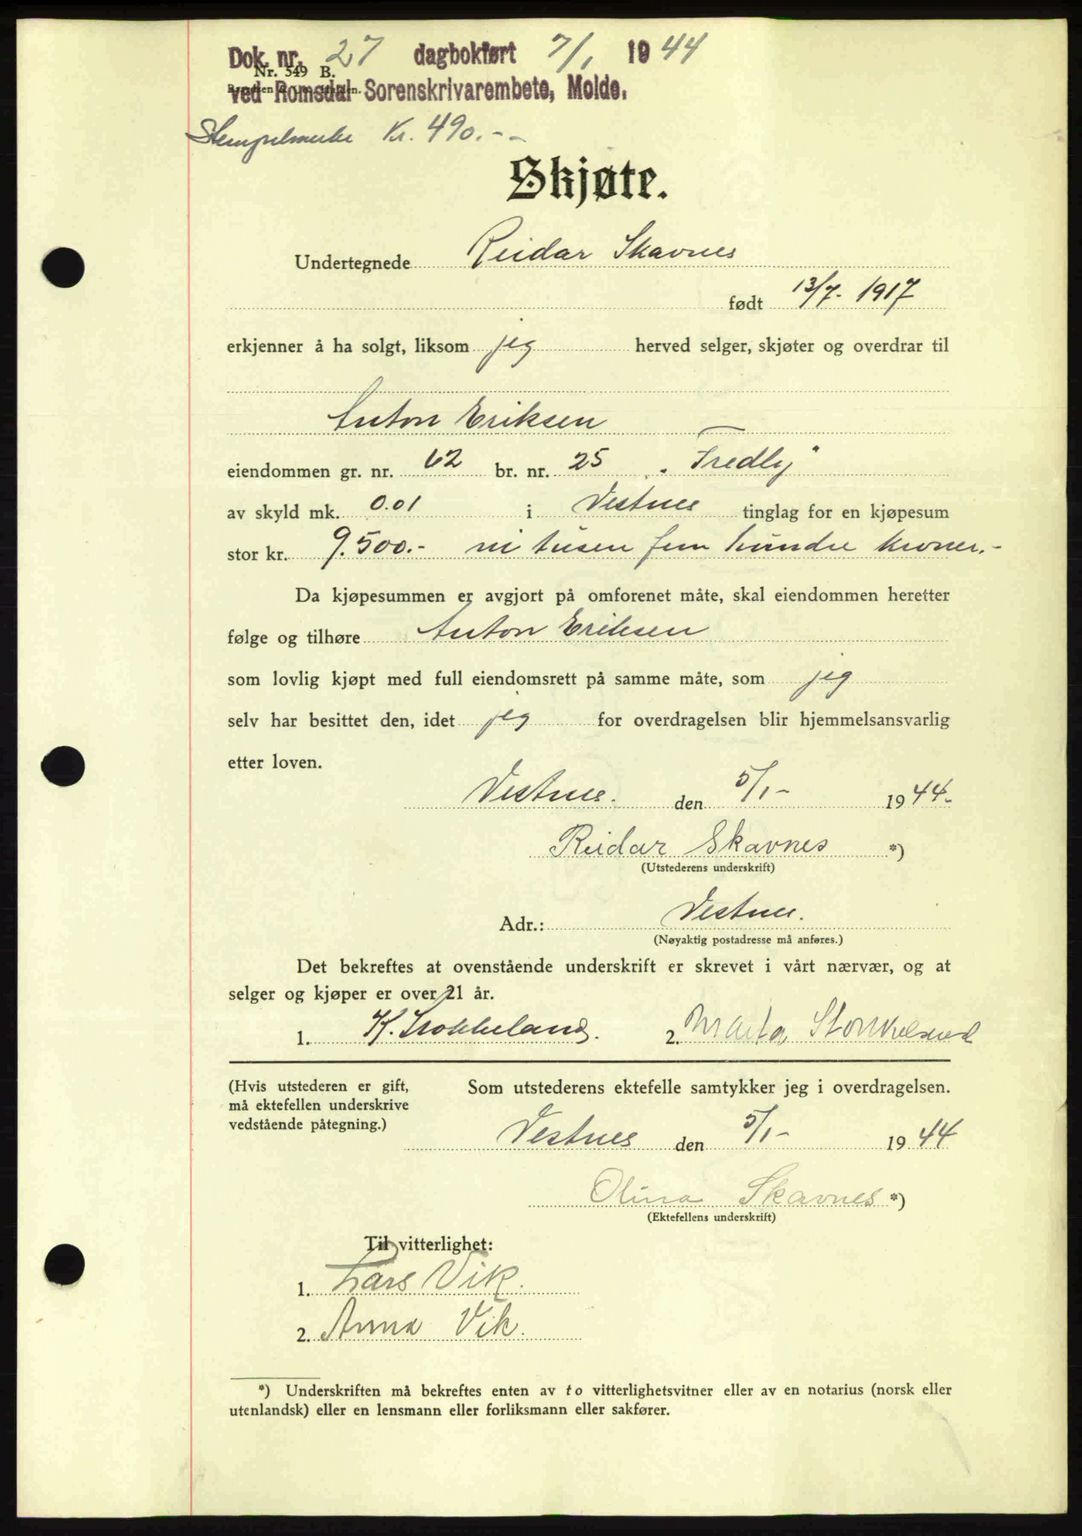 Dok. nr. 27 dagbokført 7/1 1944
Nr. 549 B.
ved Romsdal Sorenskrivarembete, Molde.
Stempelmerke Kr. 490.--
Skjøte.
Undertegnede Reidar Skavnes
født 13/7- 1917
erkjenner å ha solgt, liksom jeg herved selger, skjøter og overdrar til
Anton Eriksen
eiendommen gr. nr. 62 br. nr. 25 „Fredly"
av skyld mk. 0.01 i Vestnes tinglag for en kjøpesum
stor kr. 9.500.- ni tusen fem hundre kroner.-
Da kjøpesummen er avgjort på omforenet måte, skal eiendommen heretter
følge og tilhøre Anton Eriksen
som lovlig kjøpt med full eiendomsrett på samme måte, som jeg
selv har besittet den, idet jeg for overdragelsen blir hjemmelsansvarlig
etter loven.
Vestnes. den 5/1- 1944.
Reidar Skavnes *)
(Utstederens underskrift)
Adr.: Vestnes.
(Nøyaktig postadresse må anføres.)
Det bekreftes at ovenstående underskrift er skrevet i vårt nærvær, og at
selger og kjøper er over 21 år.
1. K. 2. Marta
(Hvis utstederen er gift, Som utstederens ektefelle samtykker jeg i overdragelsen.
må ektefellen underskrive
vedstående påtegning.)
Vestnes den 5/1- 1944
Olina Skavnes *)
(Ektefellens underskrift)
Til vitterlighet:
1. Lars Vik.
2. Anna Vik.
*) Underskriften må bekreftes enten av to vitterlighetsvitner eller av en notarius (norsk eller
utenlandsk) eller en lensmann eller forliksmann eller sakfører.